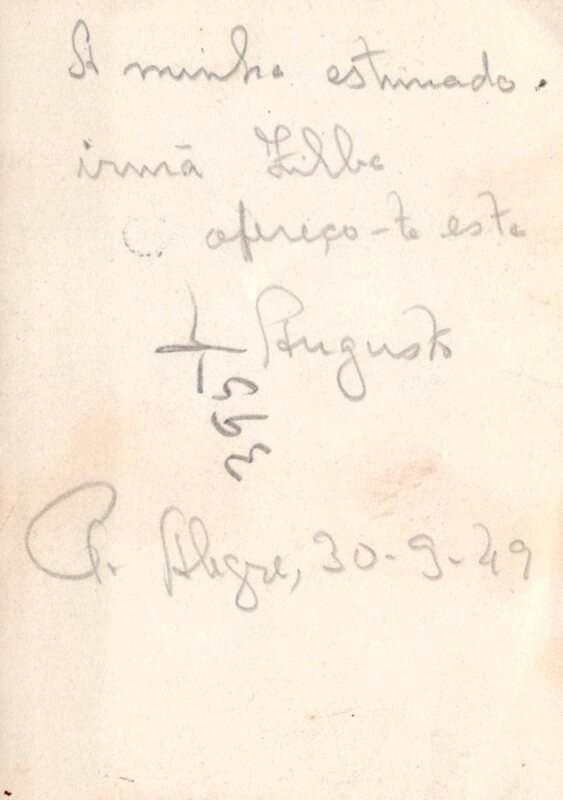 A minha estimada.
irmã Zilba
ofereço-te esta
Augusto
P. Alegre, 30-9-49